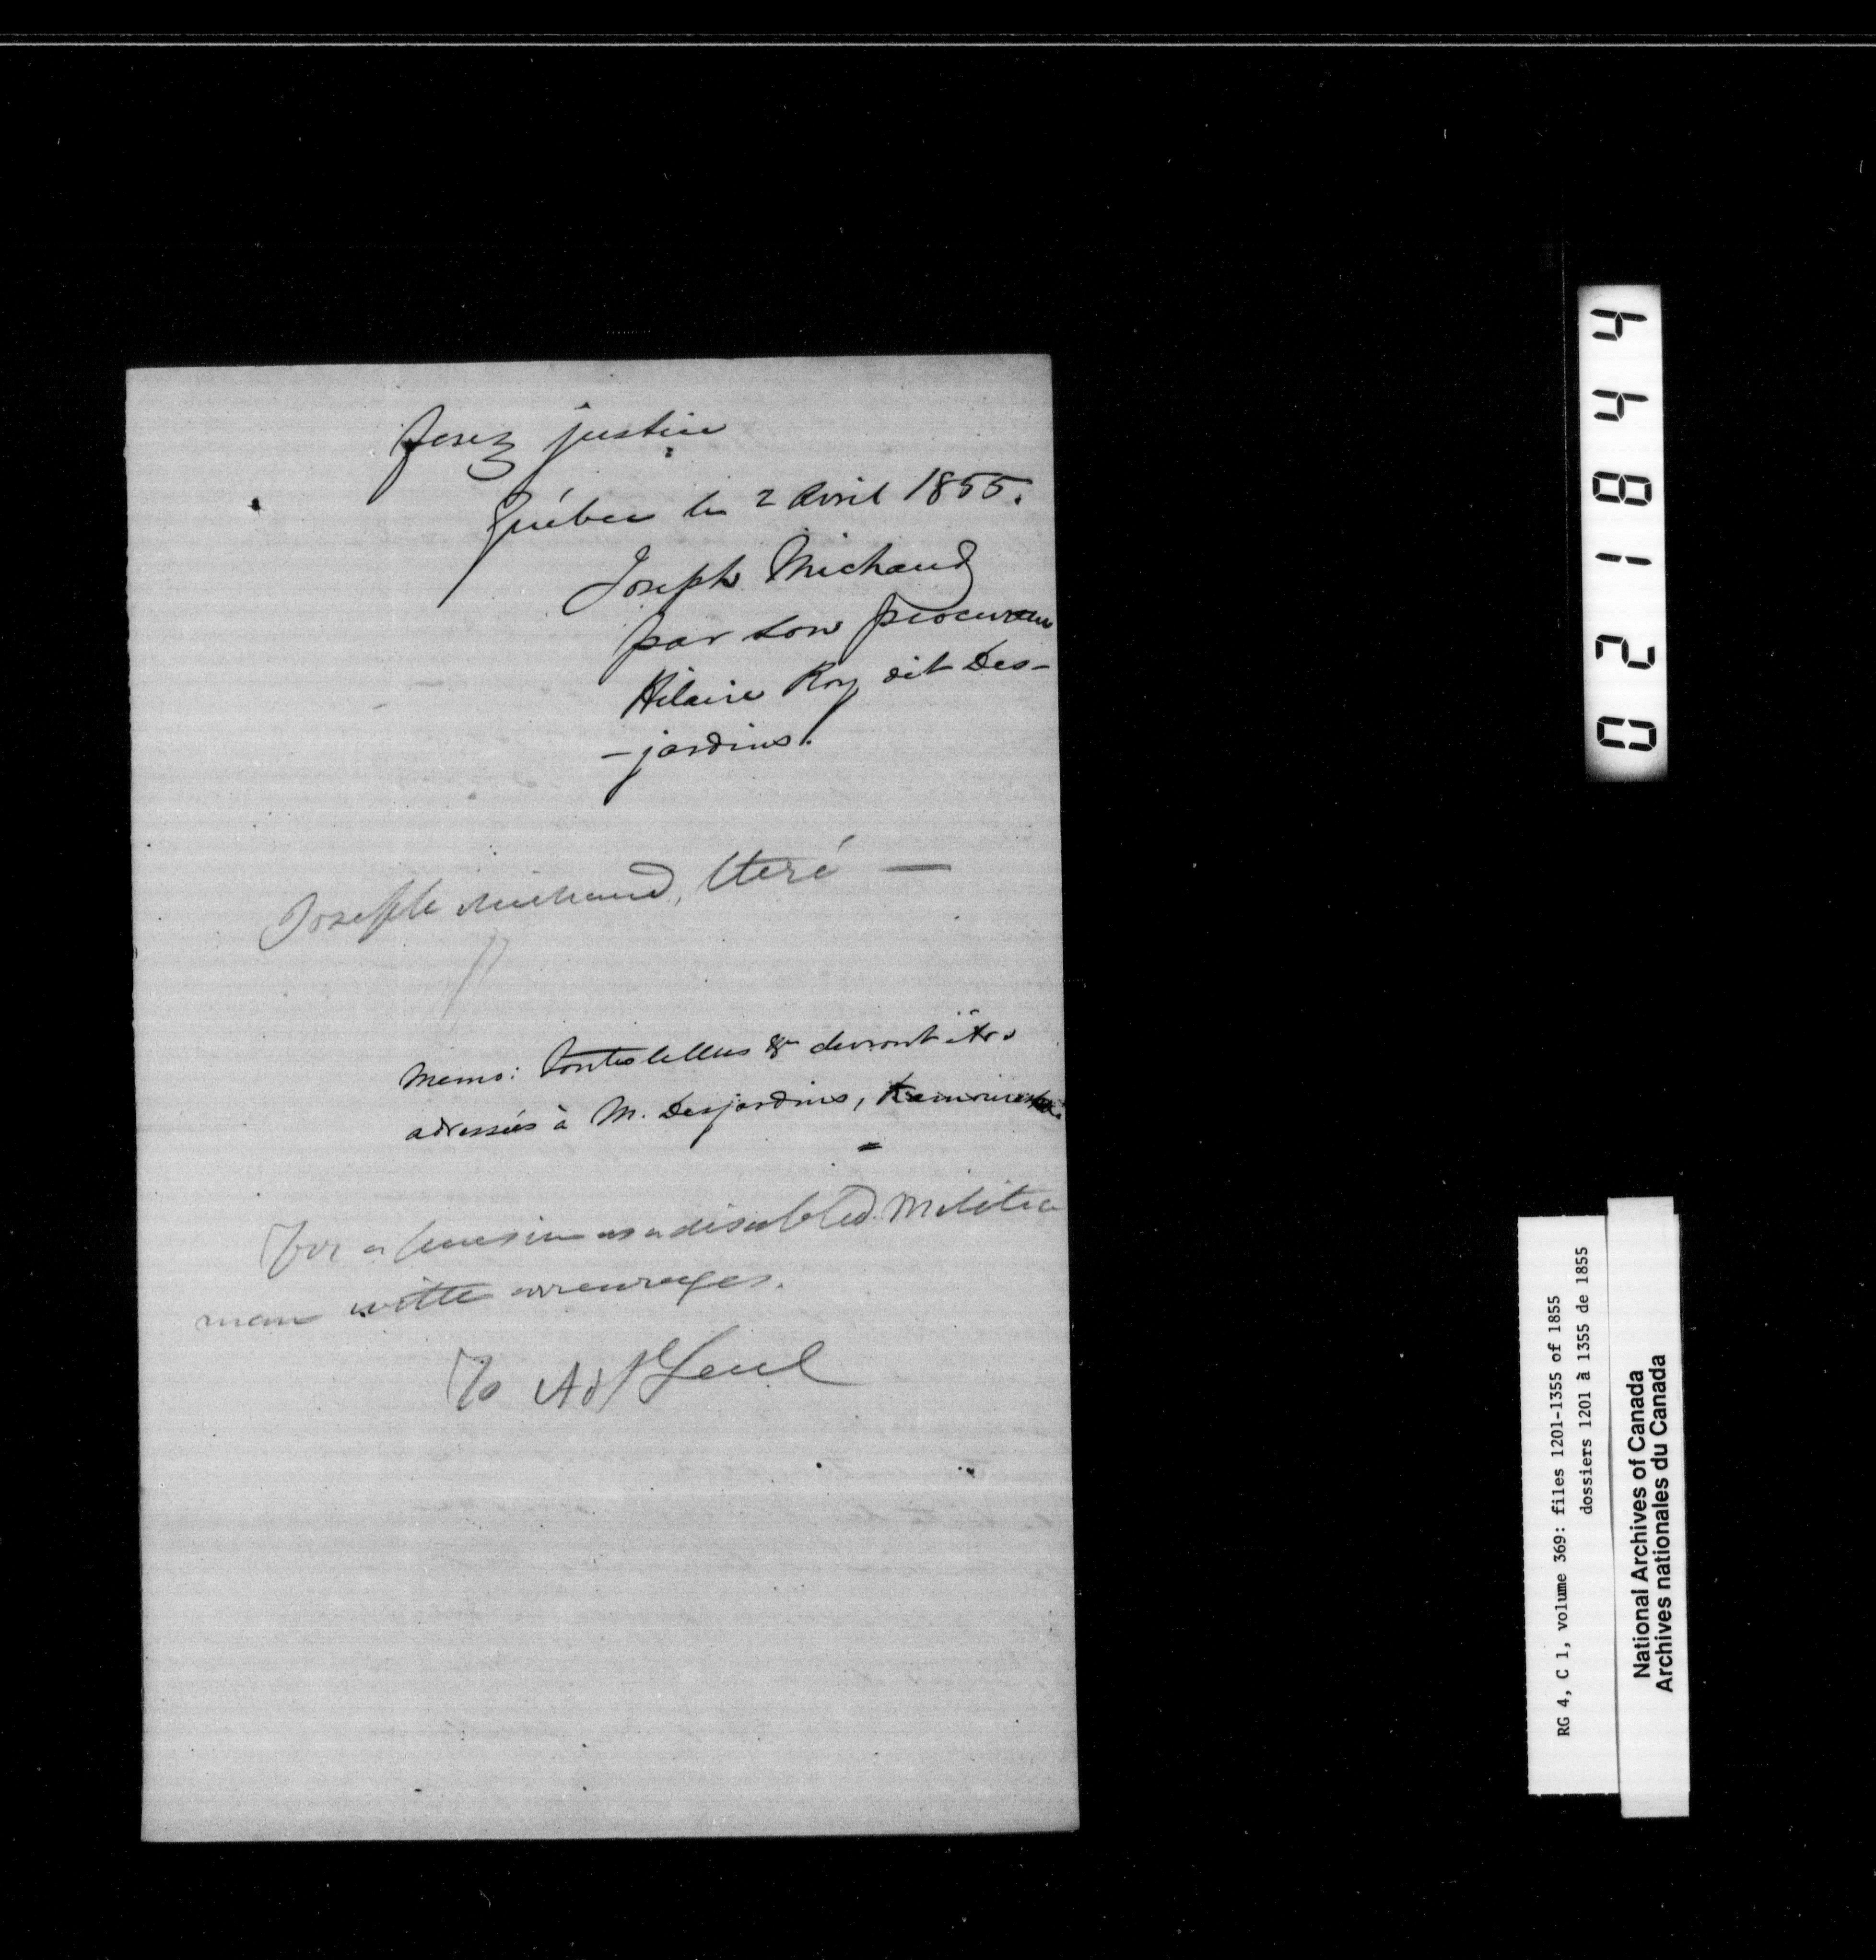 ferez justice
Québec le 2 Avril 1855.
Joseph Michaud
par son procureur
Hilaire Roy dit Des-
-jardins.
Joseph Michaud,
Memo: Toutes lettres &c devront être
adressées à M. Desjardins, Kamouraska.
For a pension as a disabled Militia
man with arrearages.
To Adjt Genl
024844
RG 4, C 1, volume 369: files 1201-1355 of 1855
dossiers 1201 à 1355 de 1855
National Archives of Canada
Archives nationales du Canada